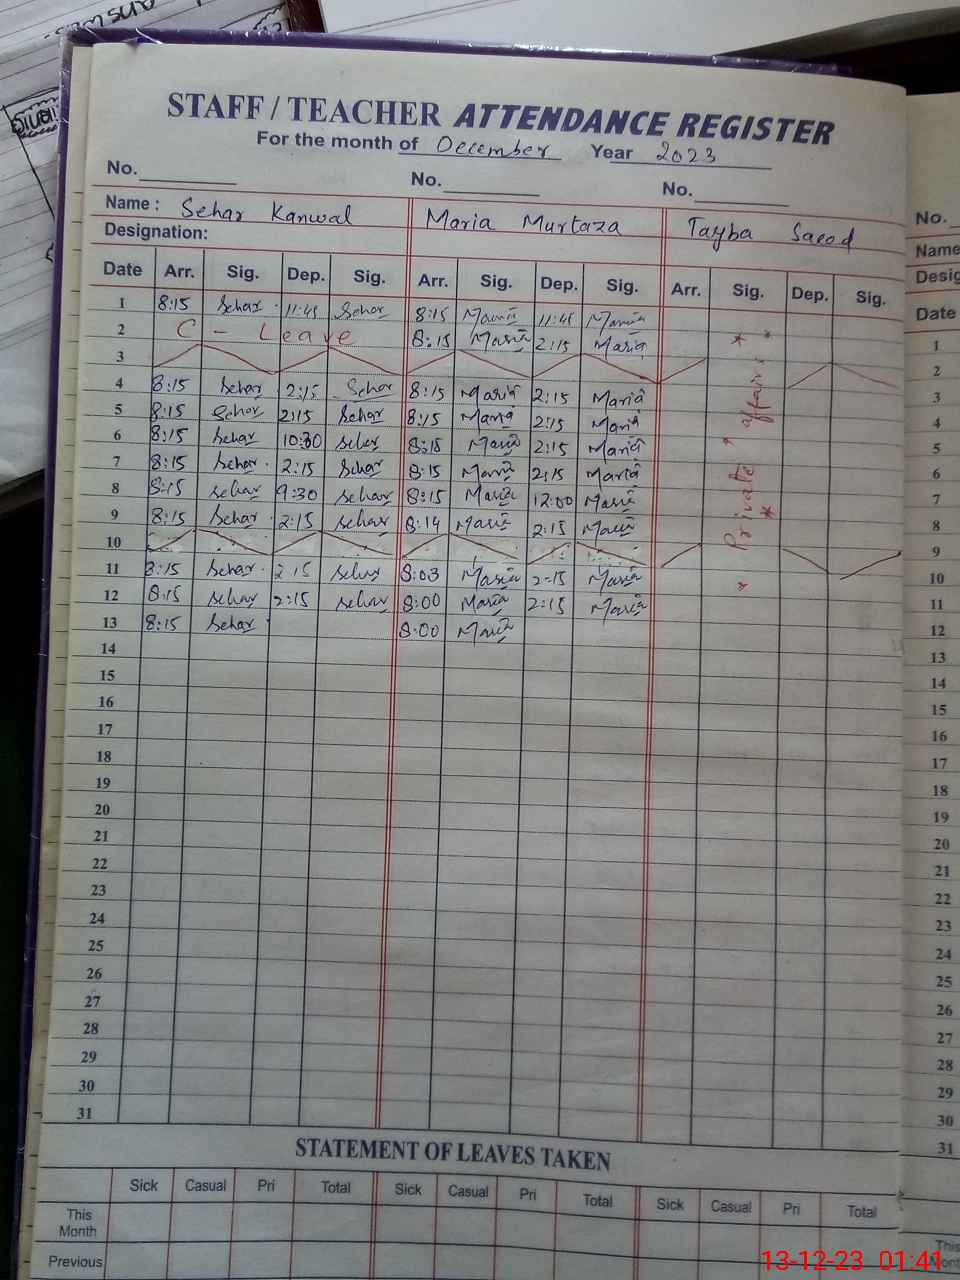 STAFF / TEACHER ATTENDANCE REGISTER
For the month of December Year 2023
No. No. No.
Name : Sehar Kanwal Maria Murtaza Tayba Saeed
Designation:
Date Arr. Sig. Dep. Sig. Arr. Sig. Dep. Sig. Arr. Sig. Dep. Sig.
1 8:15 Sehar 11:45 Sehar 8:15 Maria 11:45 Maria
2 C - Leave 8:15 Maria 2:15 Maria
3
4 8:15 Sehar 2:15 Sehar 8:15 Maria 2:15 Maria
5 8:15 Sehar 2:15 Sehar 8:15 Maria 2:15 Maria
6 8:15 Sehar 10:30 Sehar 8:15 Maria 2:15 Maria
7 8:15 Sehar 2:15 Sehar 8:15 Maria 2:15 Maria
8 8:15 Sehar 9:30 Sehar 8:15 Maria 12:00 Maria
9 8:15 Sehar 2:15 Sehar 8:14 Maria 2:15 Maria
10
11 8:15 Sehar 2:15 Sehar 8:03 Maria 2:15 Maria
12 8:15 Sehar 2:15 Sehar 8:00 Maria 2:15 Maria
13 8:15 Sehar 8:00 Maria
14
15
16
17
18
19
20
21
22
23
24
25
26
27
28
29
30
31
Private affairs
STATEMENT OF LEAVES TAKEN
Sick Casual Pri Total Sick Casual Pri Total Sick Casual Pri Total
This Month
Previous
No.
Name
Desig
Date
1
2
3
4
5
6
7
8
9
10
11
12
13
14
15
16
17
18
19
20
21
22
23
24
25
26
27
28
29
30
31
This
13-12-23 01:41